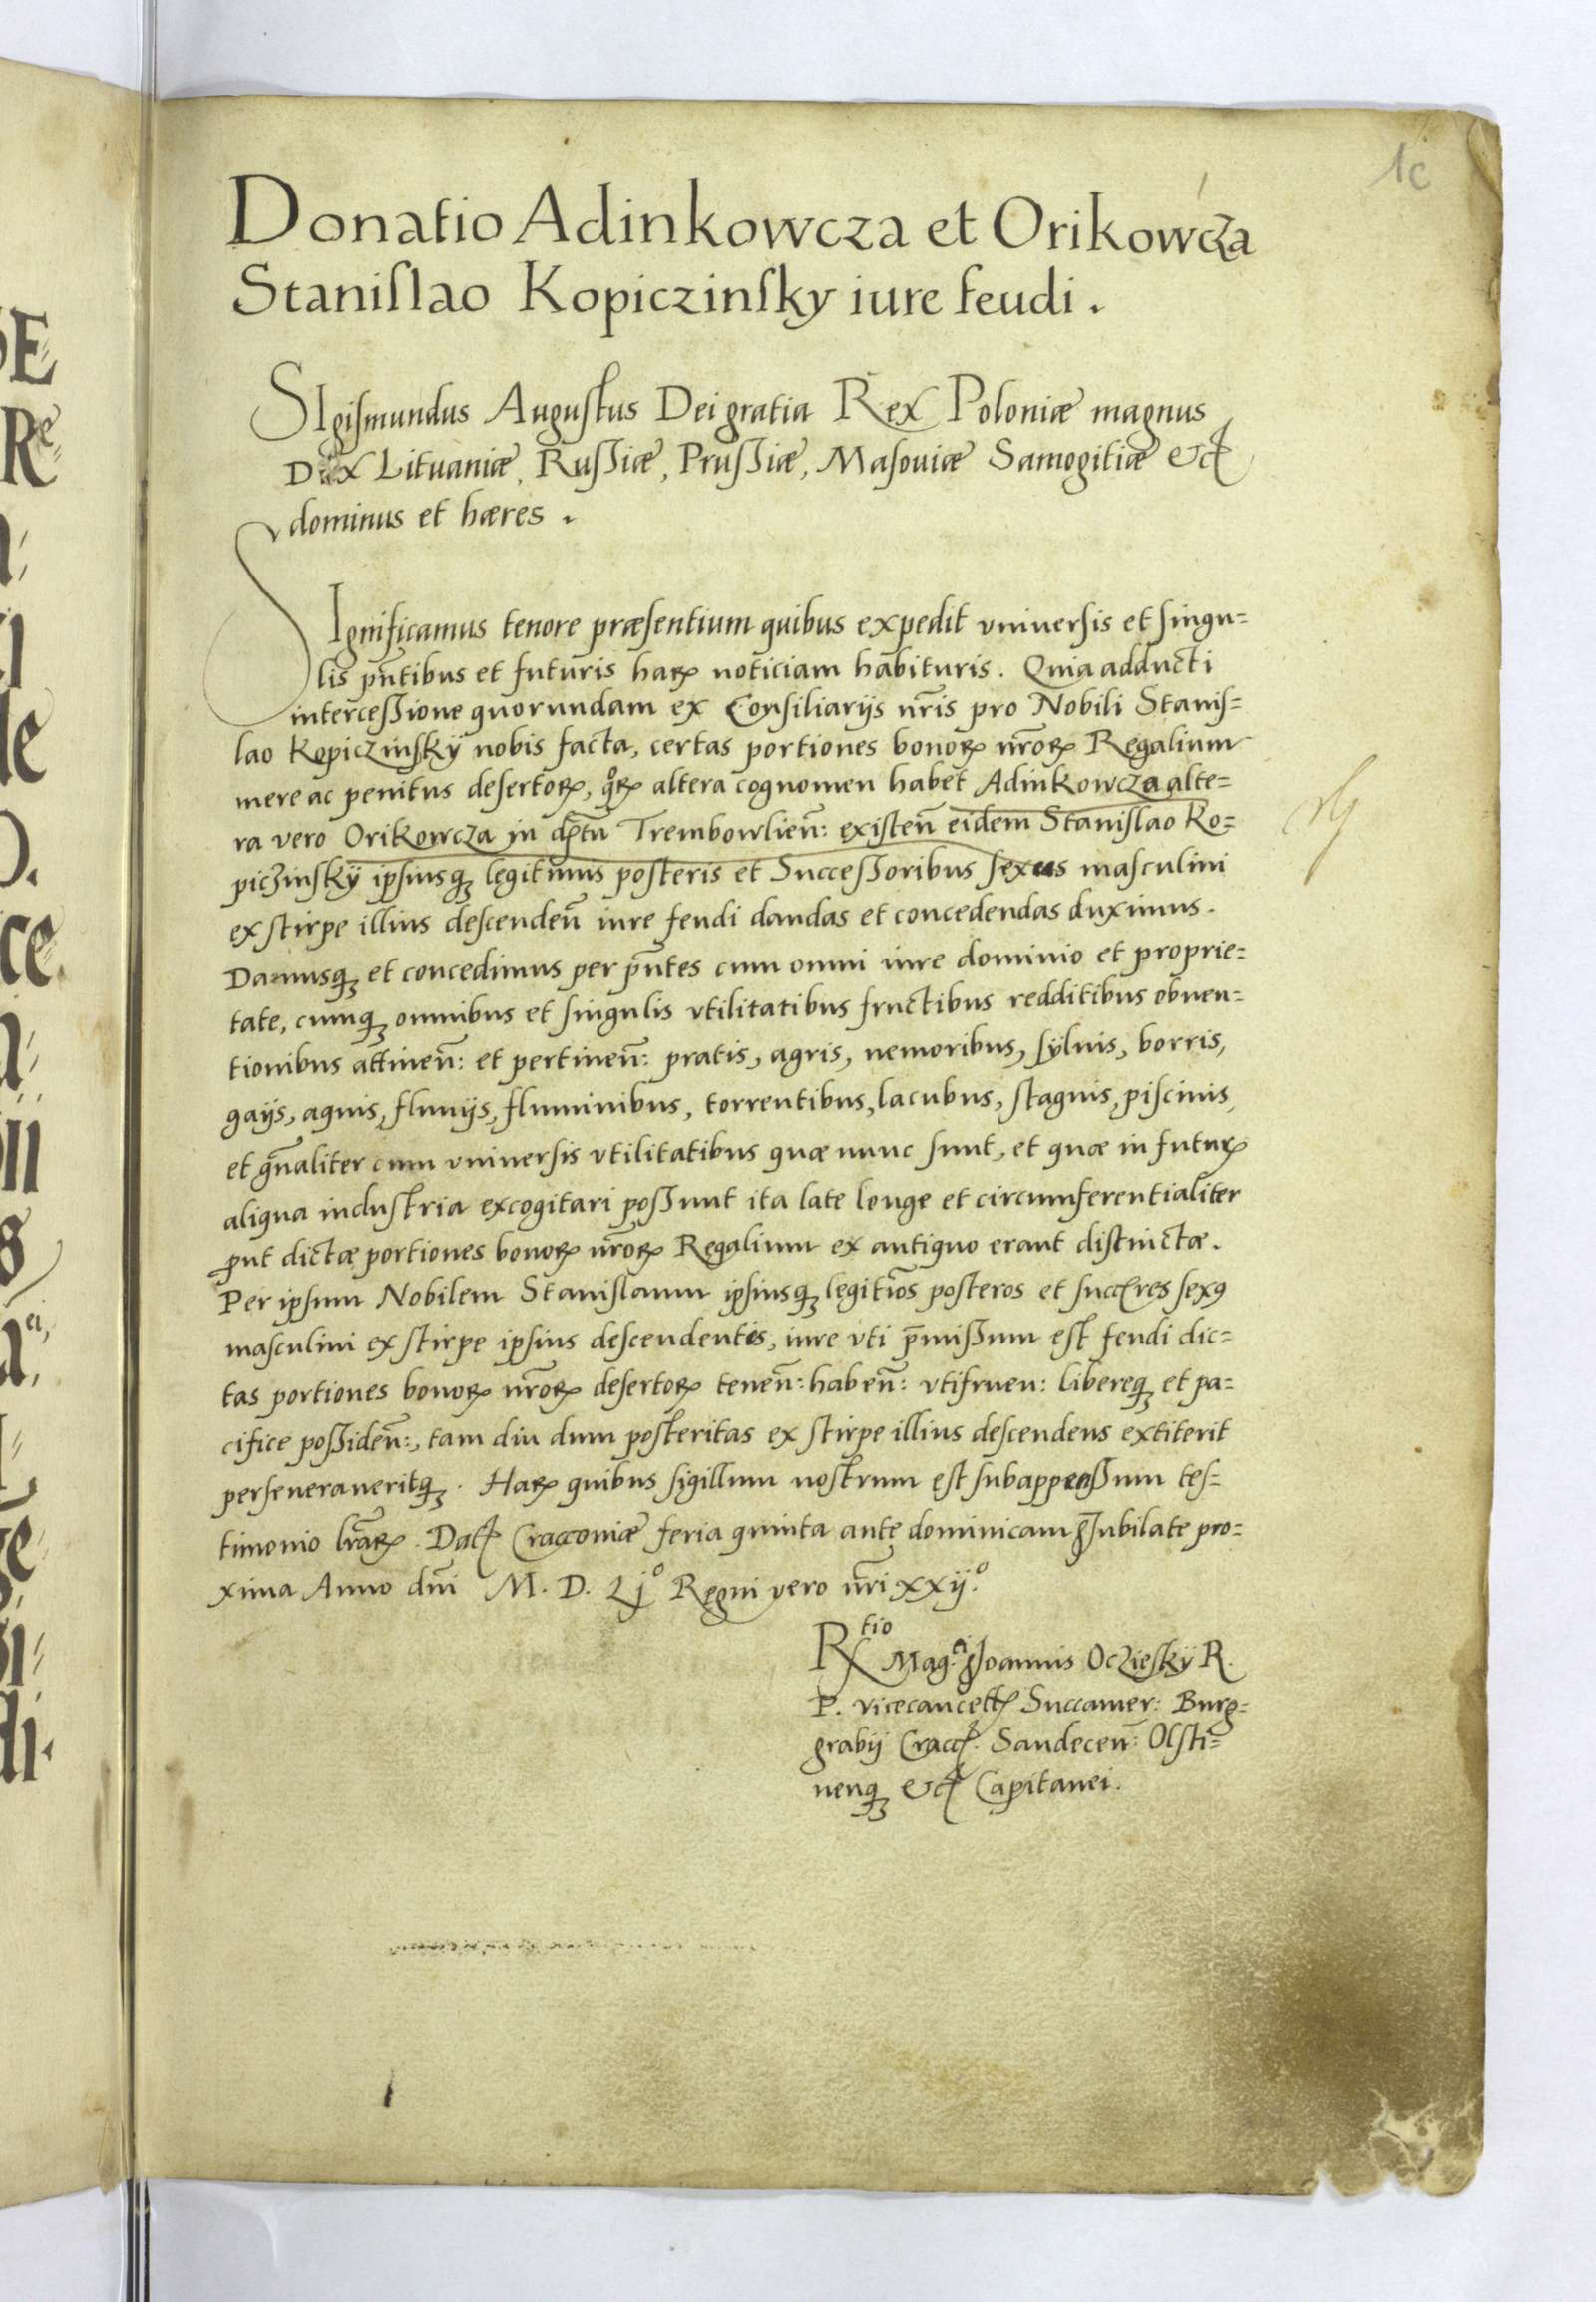 1c
Donatio Adinkowcza et Orikowcza
Stanislao Kopiczinsky iure feudi.
SIgismundus Augustus Dei gratia Rex Poloniæ magnus
Dux Lituaniæ, Russiæ, Prussiæ, Masouiæ Samogitiæ &c
dominus et hæres.
SIgnificamus tenore præsentium quibus expedit vniuersis et singu=
lis pñtibus et futuris harꝝ noticiam habituris. Quia adducti
intercessione quorundam ex Consiliarijs nr̃is pro Nobili Stanis=
lao Kopiczinskÿ nobis facta, certas portiones bonorꝝ nr̃orꝝ Regalium
mere ac penitus desertorꝝ, qͦrꝝ altera cognomen habet Adinkowcza alte=
ra vero Orikowcza in dp̃tu Trembowlien̄: existen̄ eidem Stanislao Ko=
piczinskÿ ipsiusqꝫ legitimis posteris et Successoribus sexus masculini
ex stirpe illius descenden̄ iure feudi dandas et concedendas duximus.
Damusqꝫ et concedimus per p̃ntes cum omni iure dominio et proprie=
tate, cumqꝫ omnibus et singulis vtilitatibus fructibus redditibus obuen=
tionibus attinen̄: et pertinen̄: pratis, agris, nemoribus, sÿluis, borris,
gaijs, aquis, fluuijs, fluminibus, torrentibus, lacubus, stagnis, piscinis,
et gñaliter cum vniuersis vtilitatibus quæ nunc sunt, et quæ in futurꝝ
aliqua industria excogitari possunt ita late longe et circumferentialiter
ꝓut dictæ portiones bonorꝝ nr̃orꝝ Regalium ex antiquo erant distinctæ.
Per ipsum Nobilem Stanislaum ipsiusqꝫ legitīos posteros et succ̄res sexꝰ
masculini ex stirpe ipsius descendentes, iure vti p̄missum est feudi dic=
tas portiones bonorꝝ nr̃orꝝ desertorꝝ tenen̄: haben̄: vtifruen: libereqꝫ et pa=
cifice possiden̄:, tam diu dum posteritas ex stirpe illius descendens extiterit
perseueraueritqꝫ. Harꝝ quibus sigillum nostrum est subappensum tes=
timonio lr̃arꝝ. Datꝭ Cracouiæ feria quinta ante dominicam Jubilate pro=
xima Anno dñi M. D. Ljͦ Regni vero nr̃i xxijͦ.
Rtio Mag.ci Joannis Oczieskÿ R.
P. vicecancellꝭ Succamer: Burg=
grabij Craccꝭ. Sandecen̄: Olsti=
nenqꝫ &c Capitanei.